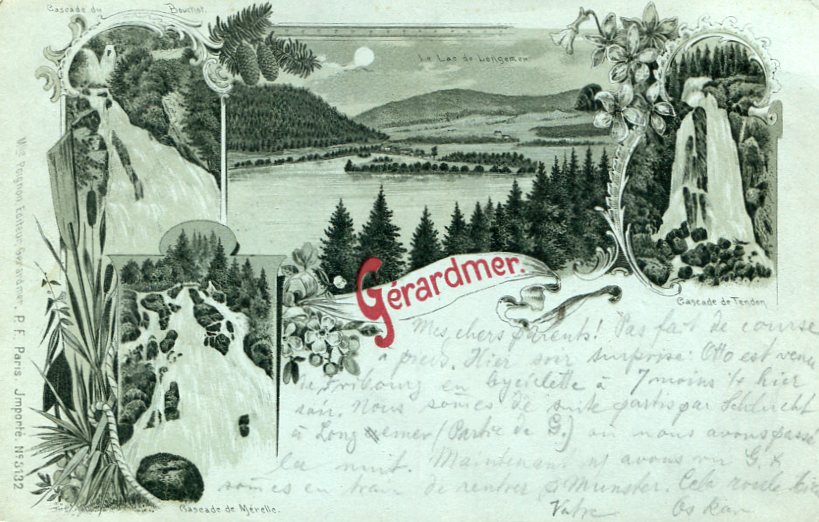 Cascade du Bouchot.
Le Lac de Longemer
Gérardmer.
Cascade de Tendon
Cascade de Mérelle.
Poignon Editeur, Gérardmer. P. F. Paris. Jmporté. Nº 5132
Mes chers parents! Pas fait de course
à pieds. Hier soir surprise: Otto est venu
de Fribourg en byciclette à 7 moins ¼ hier
soir. Nous somes de suite partis par Schlucht
à Longemer (Partie de G.) où nous avons passé
la nuit. Maintenant ns avons vu G. &
somes en train de rentrer p. Munster. Cela roule bien
Votre Oskar